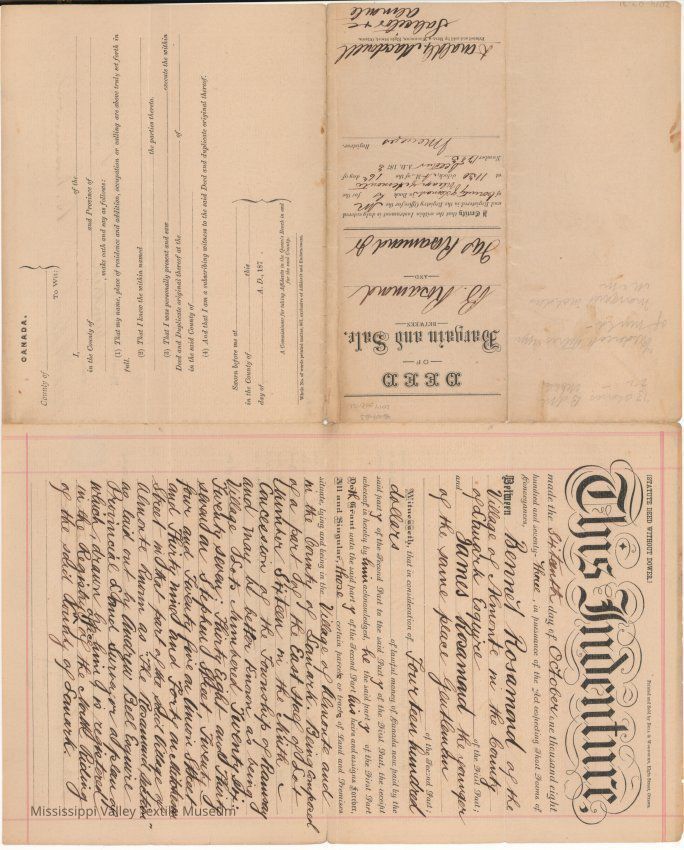 (STATUTE DEED WITHOUT DOWER.)
This Indenture,
made the Sixteenth day of October one thousand eight
hundred and seventy-three, in pursuance of the Act respecting Short Forms of
Conveyances,
Between Bennet Rosamond of the
Village of Almonte in the County
of Lanark Esquire of the First Part;
and James Rosamond the younger
of the same place Gentleman
of the Second Part,
Witnesseth, that in consideration of Fourteen hundred
dollars of lawful money of Canada now paid by the
said party of the Second Part to the said party of the First Part, the receipt
whereof is hereby by him acknowledged, he the said party of the First Part
Doth Grant unto the said party of the Second Part his heirs and assigns forever,
All and Singular, those certain parcels or tracts of Land and Premises
situate, lying and being in the Village of Almonte and
in the County of Lanark. Being composed
of a part of the East Half of Lot
Number Sixteen in the Ninth
Concession of the Township of Ramsay
and may be better known as being
Village Lots numbered Twenty Six
Twenty Seven, Thirty Eight and Thirty
seven on Stephen Street, Twenty
four and Twenty five on Union Street
and Thirty nine and Forty on
Street in that part of the said Village of
Almonte known as "The Rosamond Section"
as laid out by Andrew Bell Esquire
Provincial Land Surveyor on plan of
which drawn by him is registered
in the Registry Office of the North Riding
of the said County of Lanark
CANADA.
County of
To Wit:
I,
of the
in the County of and Province of
, make oath and say as follows:
(1) That my name, place of residence and addition, occupation or calling are above truly set forth in
full.
(2) That I know the within named
the parties thereto.
(3) That I was personally present and saw execute the within
Deed and Duplicate original thereof at the of
in the said County of
(4) And that I am a subscribing witness to the said Deed and duplicate original thereof.
Sworn before me at
in the County of this
day of A. D., 187
A Commissioner for taking Affidavits in the Queen's Bench in and
for the said County.
DEED
OF
Bargain and Sale.
BETWEEN
B. Rosamond
AND
Jas Rosamond Jr
I Certify that the within Instrument is duly entered
and Registered in the Registry Office for the
at 11.30 o'clock, A.M. of the 16th day of
A.D. 187
Number
Registrar.
Almonte
Mississippi Valley Textile Museum